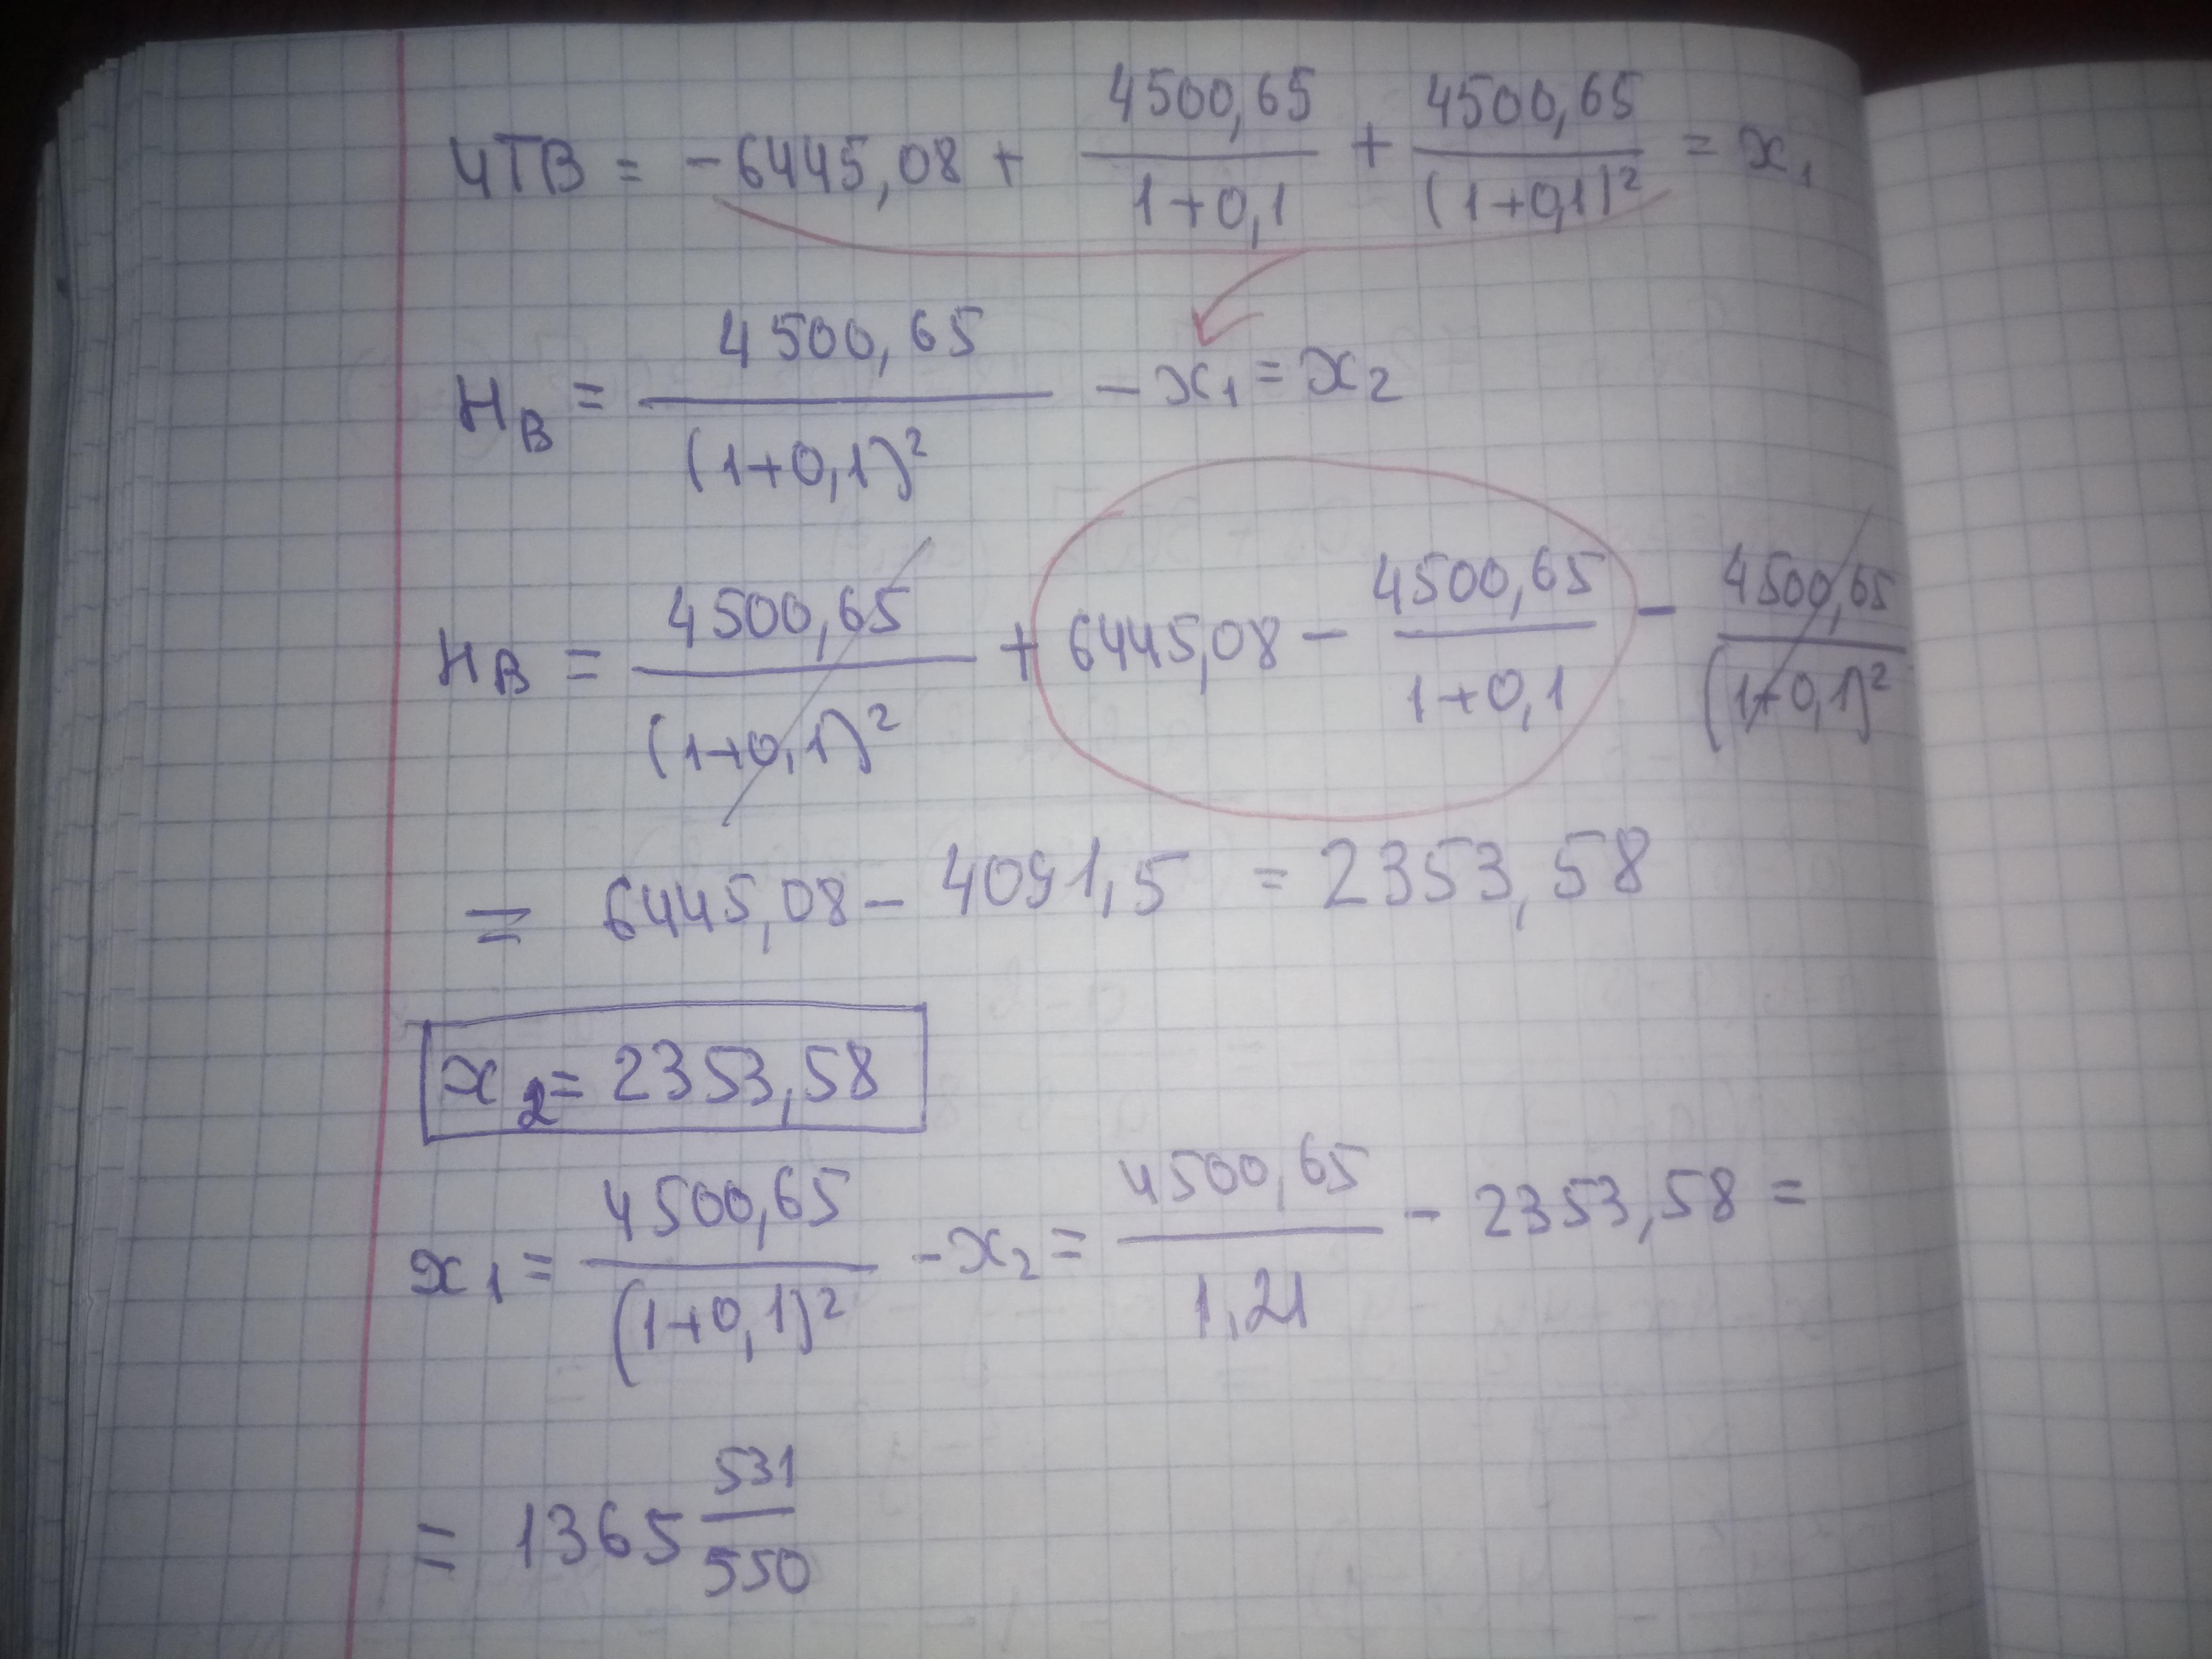 ЧТВ = -6445,08 + 4500,65/(1+0,1) + 4500,65/(1+0,1)² = x₁
Нв = 4500,65/(1+0,1)² - x₁ = x₂
Нв = 4500,65/(1+0,1)² + 6445,08 - 4500,65/(1+0,1) - 4500,65/(1+0,1)²
= 6445,08 - 4091,5 = 2353,58
x₂ = 2353,58
x₁ = 4500,65/(1+0,1)² - x₂ = 4500,65/1,21 - 2353,58 =
= 1365 531/550